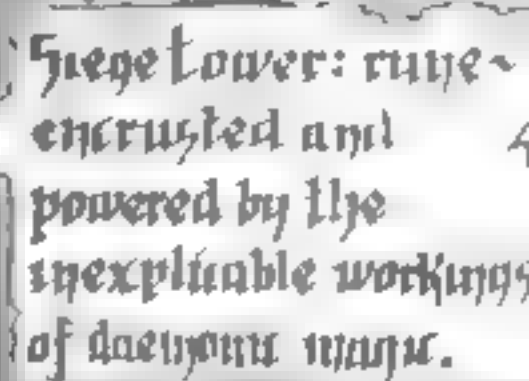 Siege Tower: rune~
encrusted and
powered by the
inexplicable workings
of daemonic magic.